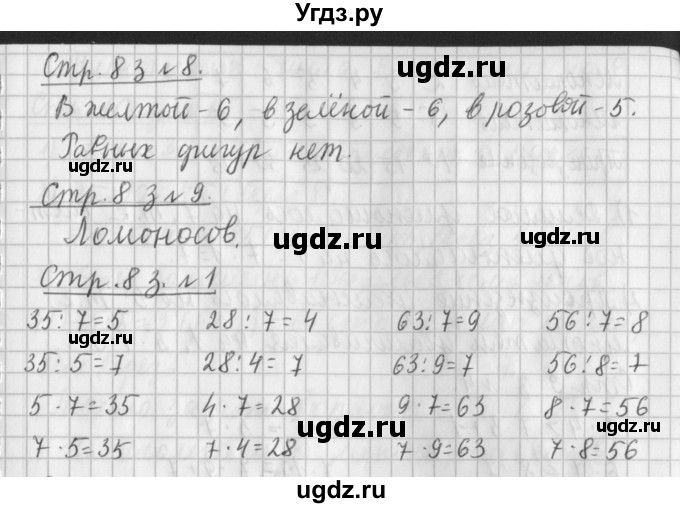 Угдз.ру
Стр. 8 з №8.
ugdz.ru
В желтой - 6, в зелёной - 6, в розовой - 5.
ugdz.ru
Равных фигур нет.
Стр. 8 з №9.
ugdz.ru
Ломоносов.
ugdz.ru
ugdz.ru
Стр. 8 з. №1
35 : 7 = 5 28 : 7 = 4 63 : 7 = 9 56 : 7 = 8
ugdz.ru
35 : 5 = 7 28 : 4 = 7 63 : 9 = 7 56 : 8 = 7
5 · 7 = 35 4 · 7 = 28 9 · 7 = 63 8 · 7 = 56
ugdz.ru
ugdz.ru
7 · 5 = 35 7 · 4 = 28 7 · 9 = 63 7 · 8 = 56
ugdz.ru
ugdz.ru